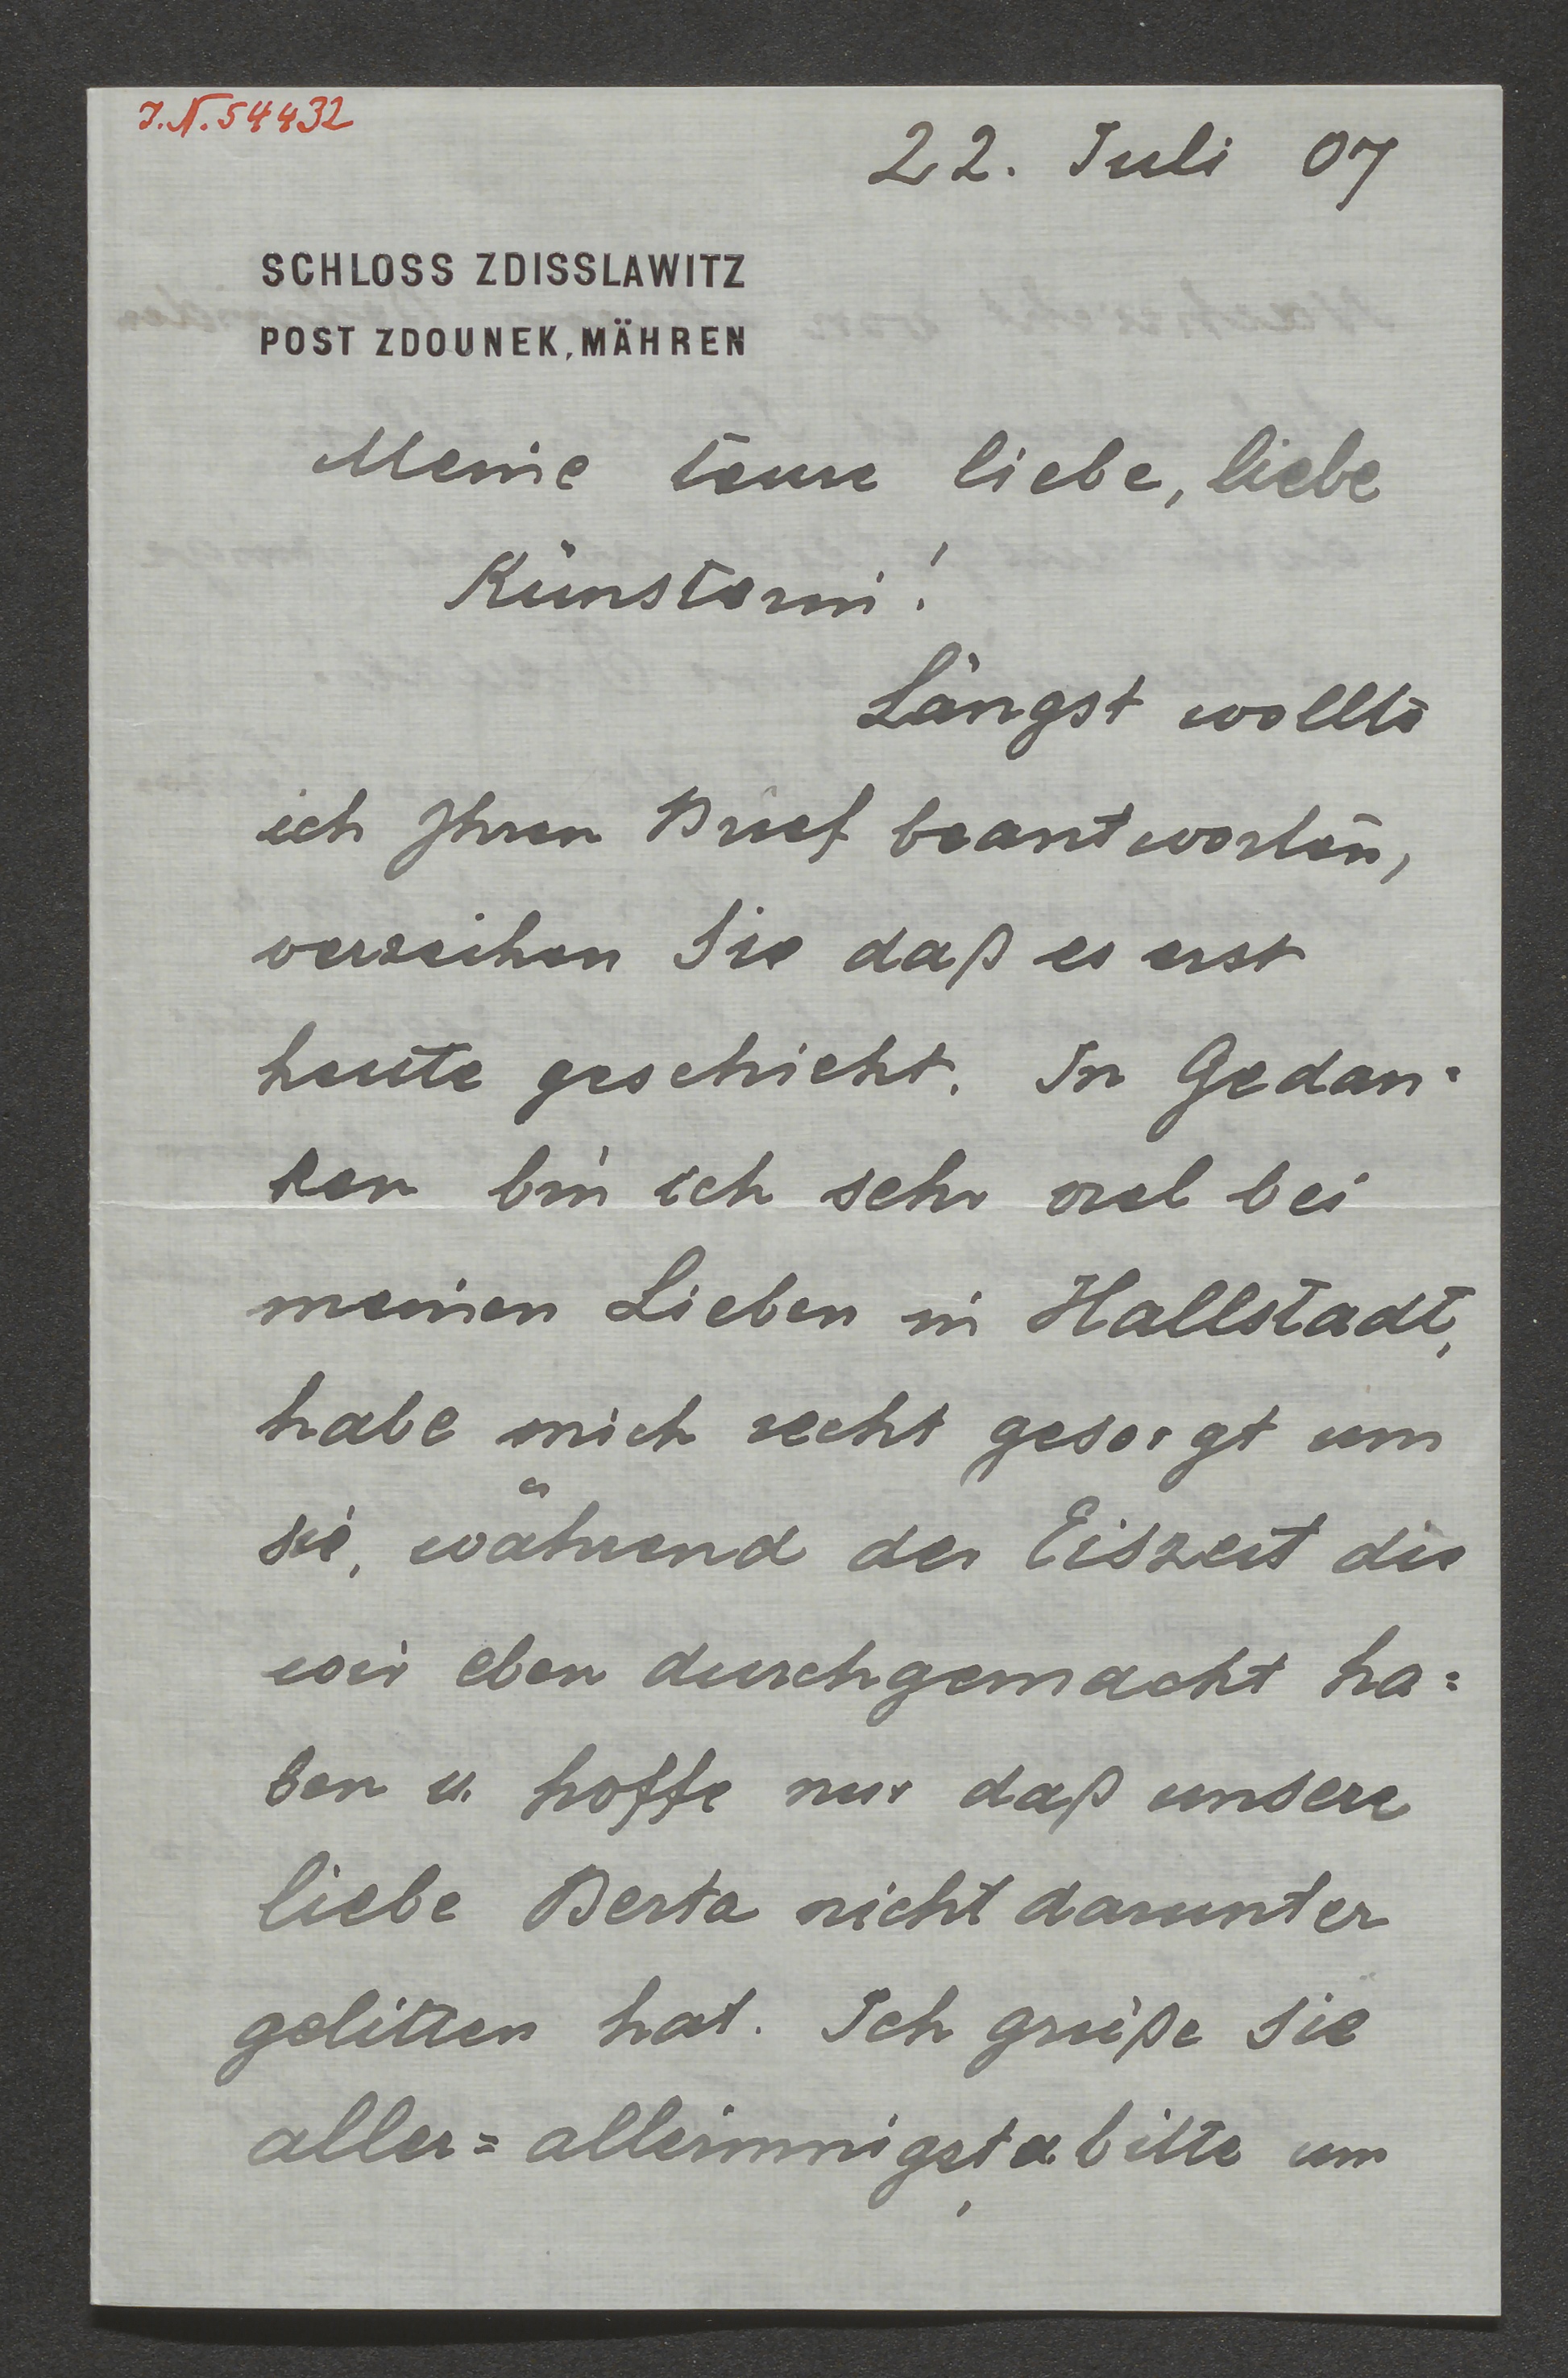 J.N. 54432
22. Juli 07
SCHLOSS ZDISSLAWITZ
POST ZDOUNEK, MÄHREN
Meine teure liebe, liebe
Künstlerin!
Längst wollte
ich Ihren Brief beantworten,
verzeihen Sie daß es erst
heute geschieht. In Gedan-
ken bin ich sehr viel bei
meinen Lieben in Hallstadt,
habe mich recht gesorgt um
sie, während der Eiszeit die
wir eben durchgemacht ha=
ben u. hoffe nur daß unsere
liebe Berta nicht darunter
gelitten hat. Ich grüße Sie
aller=allerinnigst, u. bitte um